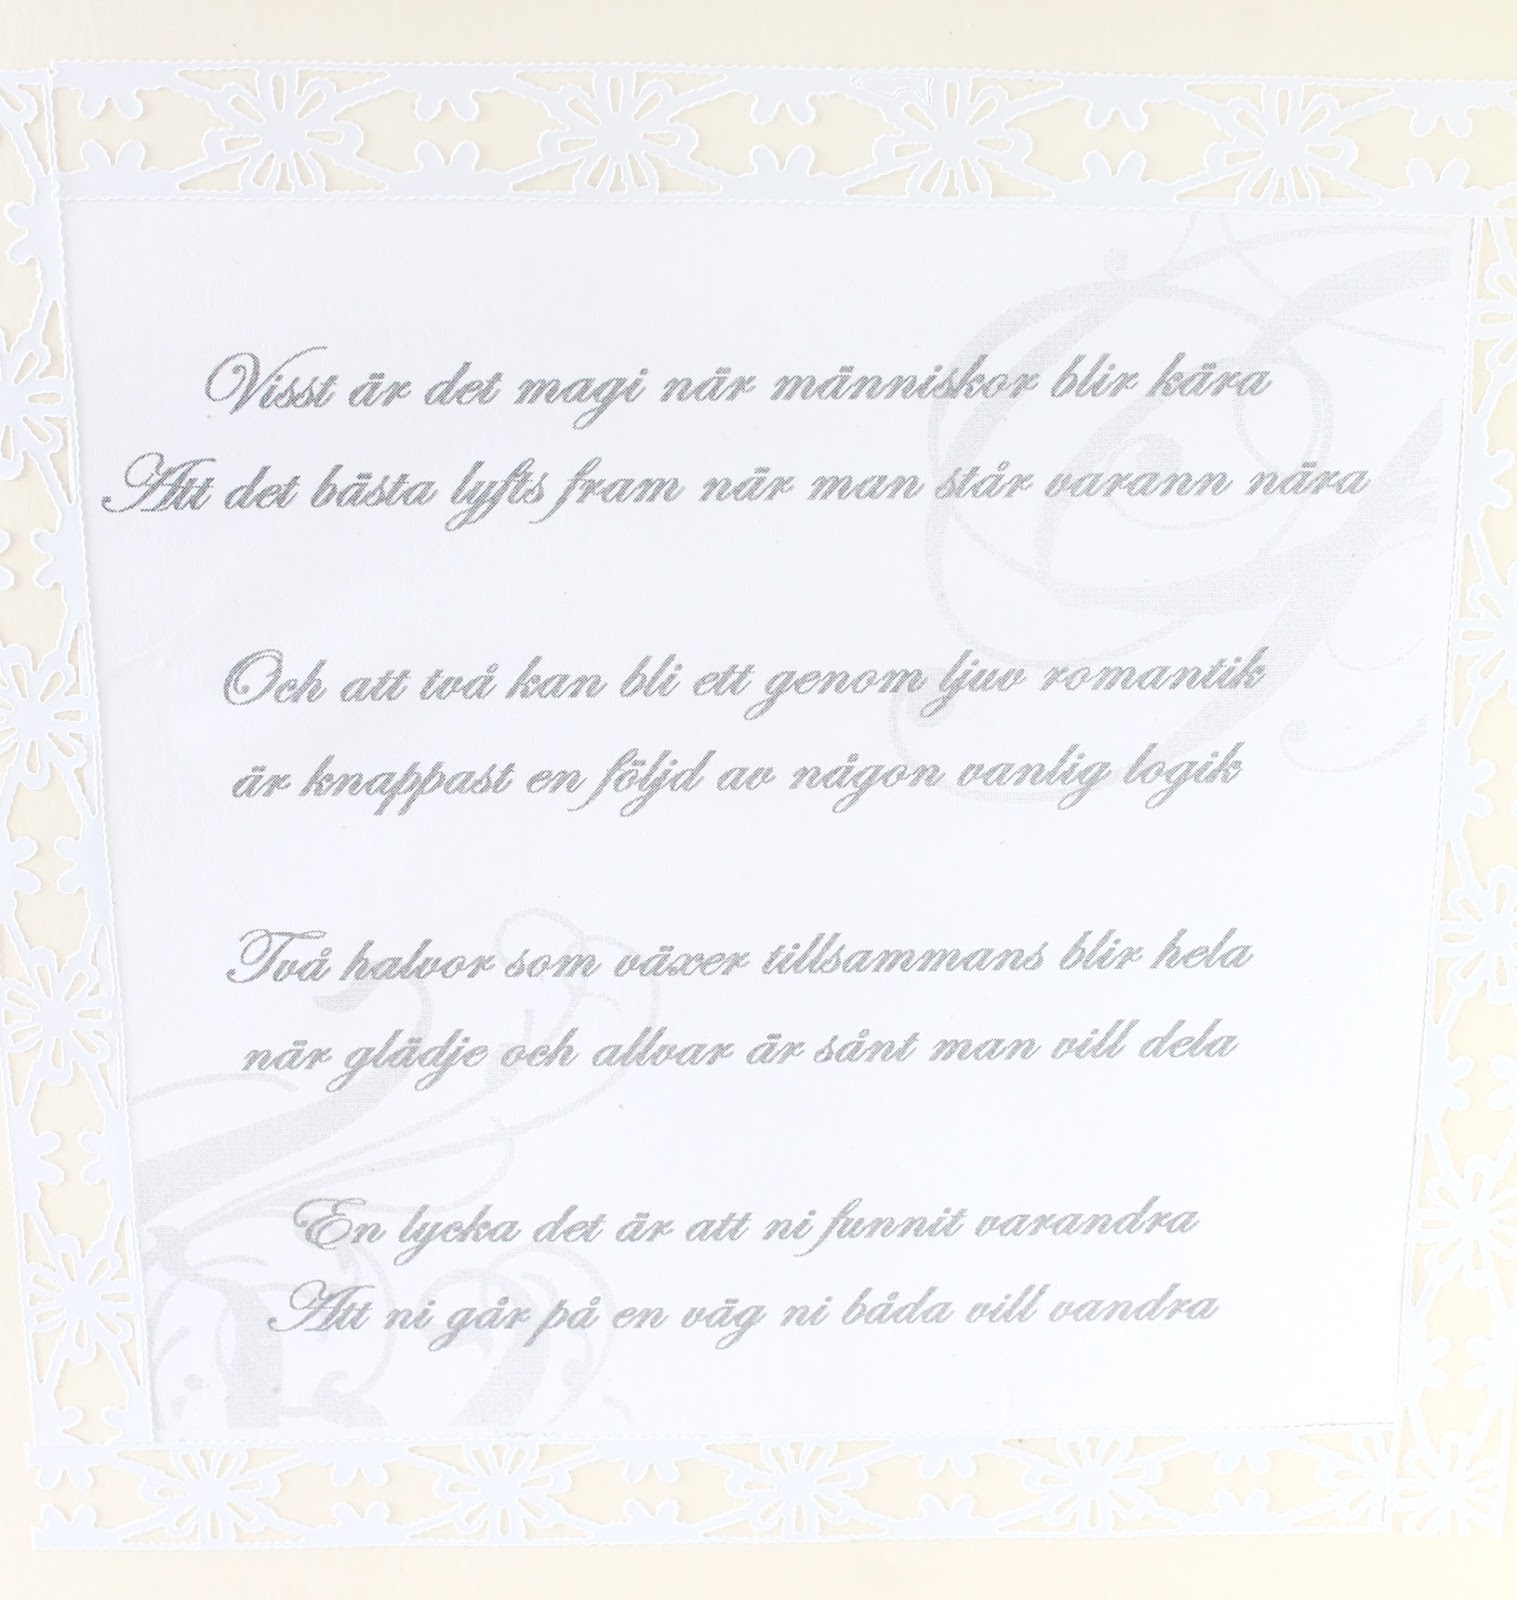 Visst är det magi när människor blir kära
Att det bästa lyfts fram när man står varann nära
Och att två kan bli ett genom ljuv romantik
är knappast en följd av någon vanlig logik
Två halvor som växer tillsammans blir hela
när glädje och allvar är sånt man vill dela
En lycka det är att ni funnit varandra
Att ni går på en väg ni båda vill vandra